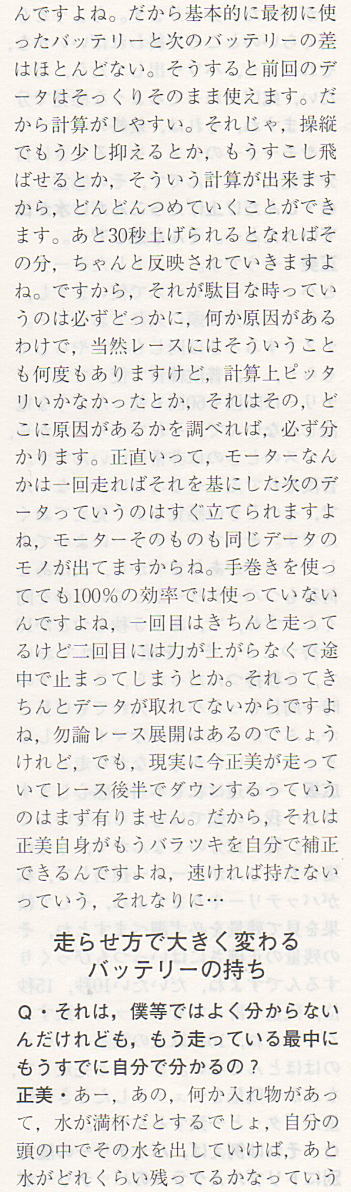 んですよね。だから基本的に最初に使
ったバッテリーと次のバッテリーの差
はほとんどない。そうすると前回のデ
ータはそっくりそのまま使えます。だ
から計算がしやすい。それじゃ，操縦
でもう少し抑えるとか，もうすこし飛
ばせるとか，そういう計算が出来ます
から，どんどんつめていくことができ
ます。あと30秒上げられるとなればそ
の分，ちゃんと反映されていきますよ
ね。ですから，それが駄目な時ってい
うのは必ずどっかに，何か原因がある
わけで，当然レースにはそういうこと
も何度もありますけど，計算上ピッタ
リいかなかったとか，それはその，ど
こに原因があるかを調べれば，必ず分
かります。正直いって，モーターなん
かは一回走ればそれを基にした次のデ
ータっていうのはすぐ立てられますよ
ね，モーターそのものも同じデータの
モノが出てますからね。手巻きを使っ
てても100％の効率では使っていない
んですよね，一回目はきちんと走って
るけど二回目には力が上がらなくて途
中で止まってしまうとか。それってき
ちんとデータが取れてないからですよ
ね，勿論レース展開はあるのでしょう
けれど，でも，現実に今正美が走って
いてレース後半でダウンするっていう
のはまず有りません。だから，それは
正美自身がもうバラツキを自分で補正
できるんですよね，速ければ持たない
っていう，それなりに…
走らせ方で大きく変わる
バッテリーの持ち
Q・それは，僕等ではよく分からない
んだけれども，もう走っている最中に
もうすでに自分で分かるの？
正美・あー，あの，何か入れ物があっ
て，水が満杯だとするでしょ，自分の
頭の中でその水を出していけば，あと
水がどれくらい残ってるかなっていう